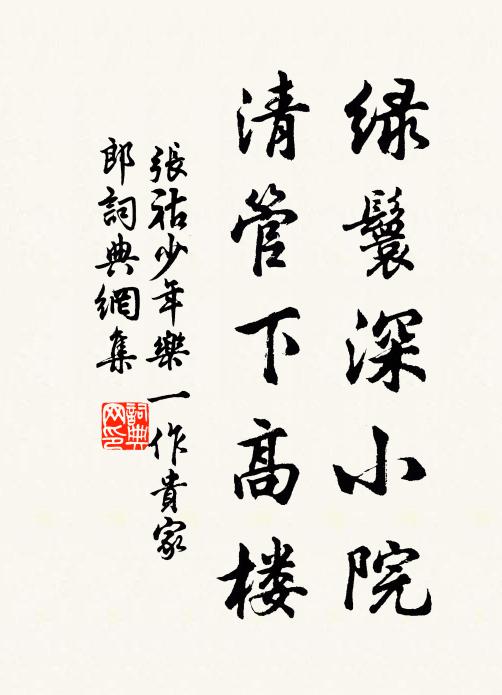 绿鬟深小院
清管下高楼
張祜少年樂一作貴家
郎詞典網集
詞典网印